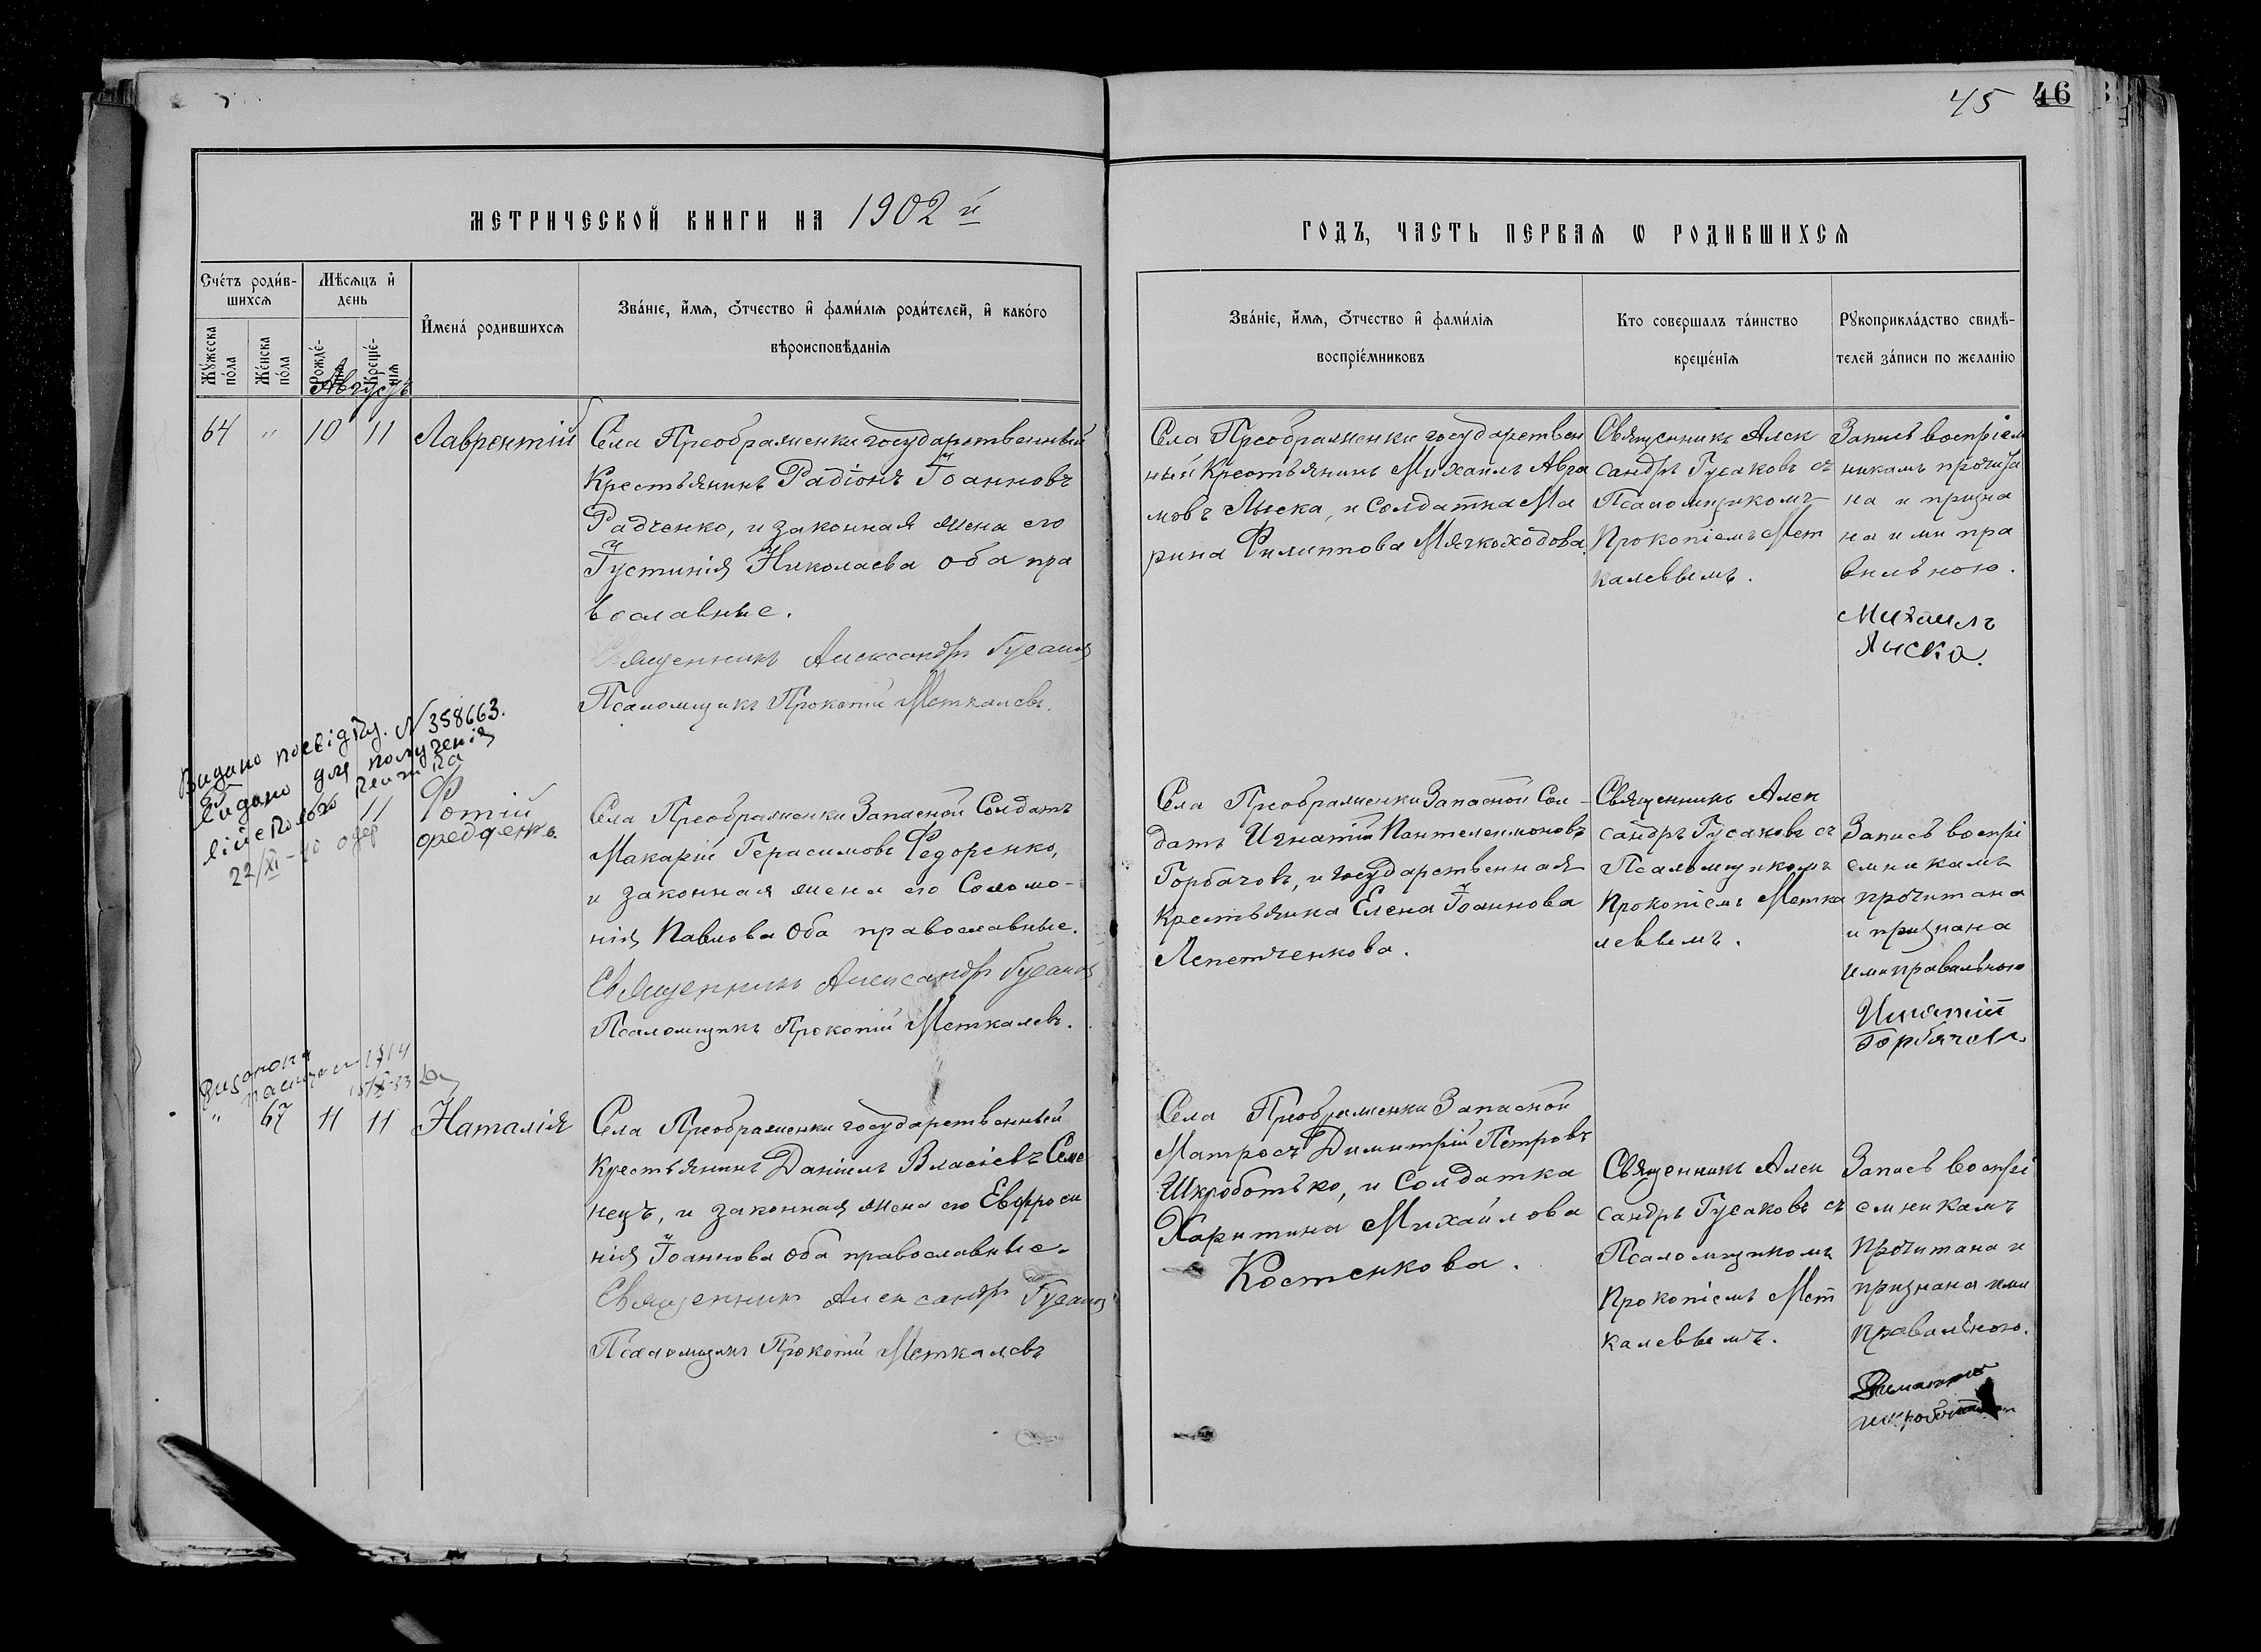 45 46
МЕТРИЧЕСКОЙ КНИГИ НА 1902 й
ГОДЪ, ЧАСТЬ ПЕРВАЯ Ѡ РОДИВШИХСЯ
Счéтъ роди́в-
шихся
Мѣсяцъ и҆
день
Мꙋ́жеска
по́ла
Же́нска
по́ла
Рожде́-
нія
Креще́-
нія
И҆мена́ родившихся
Зва́ніе, и҆́мя, ѻ҆́тчество и҆ фами́лія роди́телей, и҆ како́го
вѣроисповѣ́данія
Зва́ніе, и҆́мя, ѻ҆́тчество и҆ фами́лія
воспріе́мниковъ
Кто совершалъ та́инство
креще́нія
Рꙋкоприкла́дство свидѣ́-
телей за́писи по желанію
Августъ
64 " 10 11 Лаврентій
Села Преображенки государственный
Крестьянинъ Радіонъ Іоанновъ
Радченко, и законная жена его
Іустинія Николаева оба пра
вославные.
Священникъ Александръ Гусаковъ
Псаломщикъ Прокопій Меткалевъ.
Села Преображенки государствен
ный Крестьянинъ Михаилъ Авра
мовъ Лыска, и Солдатка Ма
рина Филиппова Мягкоходова
Священникъ Алек
сандръ Гусаковъ съ
Псаломщикомъ
Прокопіемъ Мет
калевымъ.
Запись воспріем
никамъ прочита
на и призна
на ими пра
вильною.
Михаилъ
Лыска.
Видано посвідч. N 358663.
Видано для получения
22/XI-40
11 Фотій
Федоренко.
Села Преображенки Запасной Солдатъ
Макарій Герасимовъ Федоренко,
и законная жена его Соломо-
нія Павлова оба православные.
Священникъ Александръ Гусаковъ
Псаломщикъ Прокопій Меткалевъ.
Села Преображенки Запасной Сол-
датъ Игнатій Пантелеимоновъ
Горбачовъ, и государственная
крестьянка Елена Іоаннова
Лепетченкова.
Священникъ Алек
сандръ Гусаковъ съ
Псаломщикомъ
Прокопіемъ Метка
левымъ.
Запись воспрі
емникамъ
прочитана
и признана
ими правильною
Игнатій
Горбачовъ
" 67 11 11 Наталія
Села Преображенки государственный
Крестьянинъ Даніилъ Власіевъ Семе
нецъ, и законная жена его Евфроси
нія Іоаннова оба православные.
Священникъ Александръ Гусаковъ
Псаломщикъ Прокопій Меткалевъ
Села Преображенки Запасной
Матросъ Димитрій Петровъ
Шкроботько, и Солдатка
Харитина Михайлова
Костенкова.
Священникъ Алек
сандръ Гусаковъ съ
Псаломщикомъ
Прокопіемъ Мет
калевымъ.
Запись воспрі
емникамъ
прочитана и
признана ими
правильною.